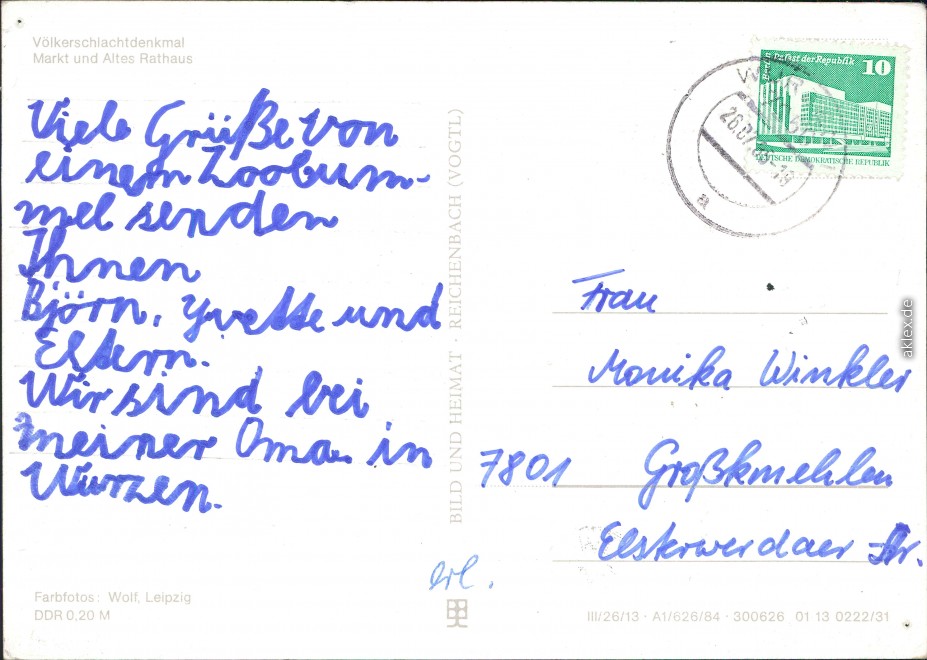 Völkerschlachtdenkmal
Markt und Altes Rathaus
Viele Grüße von
einem Zoobum-
mel senden
Ihnen
Björn, Yvette und
Eltern.
Wir sind bei
meiner Oma in
Wurzen.
Farbfotos: Wolf, Leipzig
DDR 0,20 M
BILD UND HEIMAT · REICHENBACH (VOGTL)
Palast der Republik
10
DEUTSCHE DEMOKRATISCHE REPUBLIK
a
Frau
Monika Winkler
7801 Großkmehlen
Elsterwerdaer Str.
erl.
III/26/13 · A1/626/84 · 300626 01 13 0222/31
aklex.de